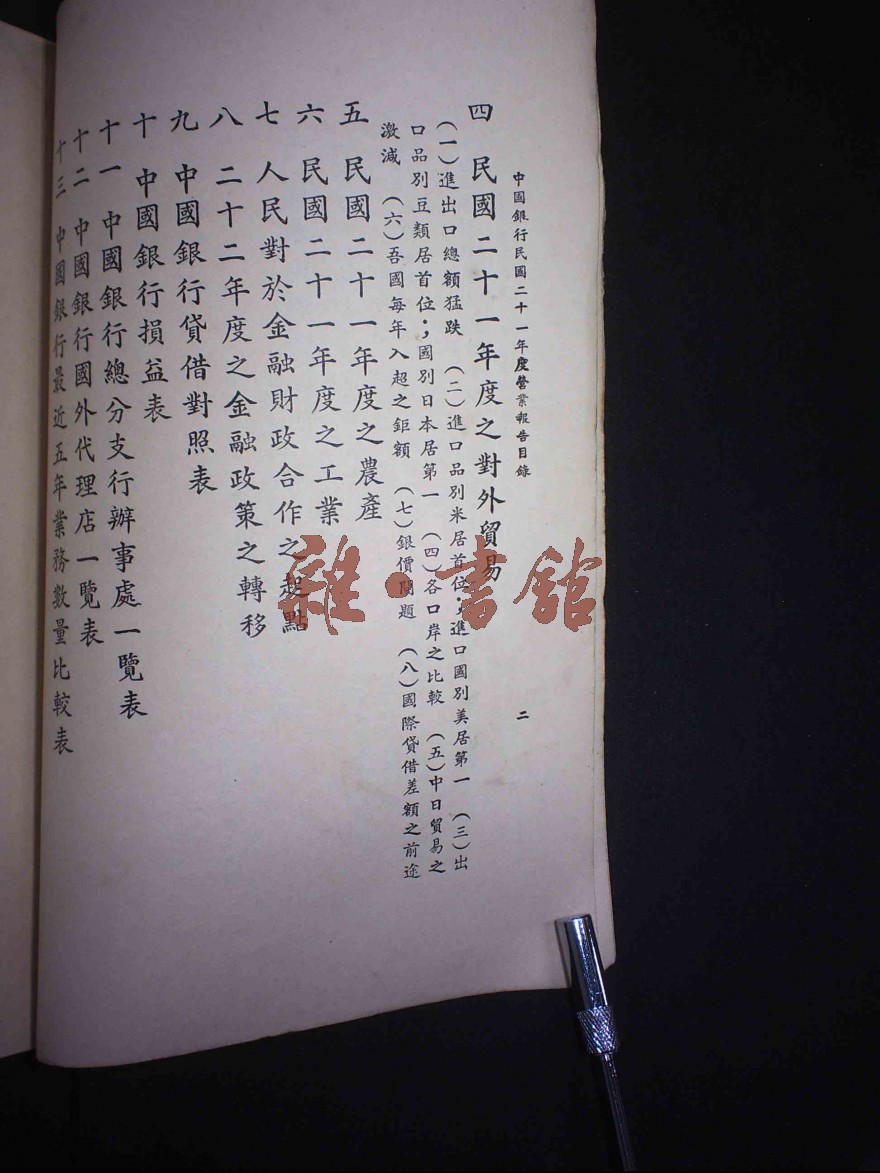 中國銀行民國二十一年度營業報告目錄
二
四 民國二十一年度之對外貿易
(一)進出口總額猛跌 (二)進口品別米居首位;進口國別美居第一 (三)出
口品別豆類居首位;國別日本居第一 (四)各口岸之比較 (五)中日貿易之
激減 (六)吾國每年入超之鉅額 (七)銀價問題 (八)國際貸借差額之前途
五 民國二十一年度之農產
六 民國二十一年度之工業
七 人民對於金融財政合作之起點
八 二十二年度之金融政策之轉移
九 中國銀行貸借對照表
十 中國銀行損益表
十一 中國銀行總分支行辦事處一覽表
十二 中國銀行國外代理店一覽表
十三 中國銀行最近五年業務數量比較表
雜·書館